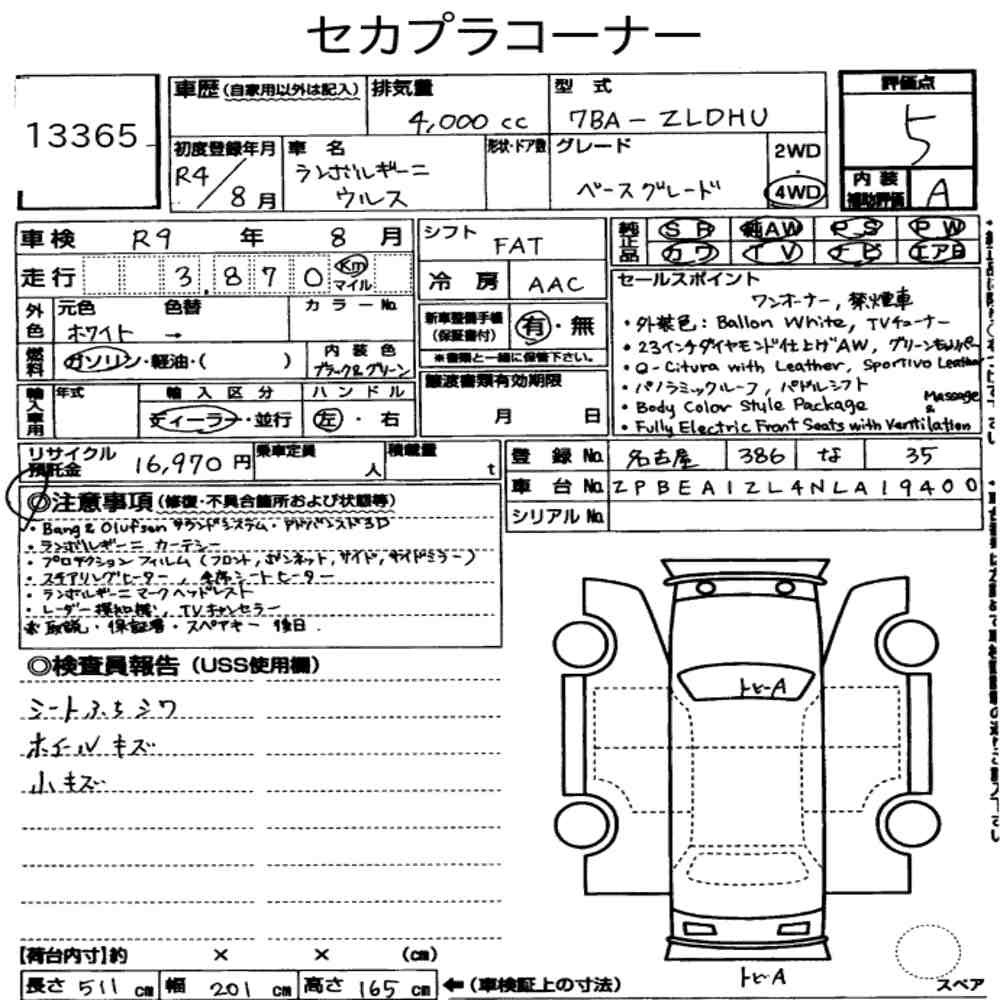 セカプラコーナー
13365
車歴 (自家用以外は記入)
排気量 4,000 cc
型式 7BA-ZLDHU
評価点 5
初度登録年月 R4/8月
車名 ランボルギーニ ウルス
形状・ドア数
グレード ベースグレード
2WD・4WD
内装補助評価 A
車検 R9年 8月
シフト FAT
純正品 SR 純AW PS PW
カワ TV ナビ エアB
走行 3,870 Km マイル
冷房 AAC
セールスポイント
ワンオーナー, 禁煙車
・外装色: Ballon White, TVチューナー
・23インチダイヤモンド仕上げAW, グリーンキャリパー
・Q-Citura with Leather, Sportivo Leather
・パノラミックルーフ, パドルシフト
・Body Color Style Package
・Fully Electric Front Seats with Ventilation & Massage
外色 元色 ホワイト → 色替
カラーNo.
新車整備手帳(保証書付) 有・無
※書類と一緒に保管下さい。
燃料 ガソリン・軽油・( )
内装色 ブラック&グリーン
譲渡書類有効期限 月 日
輸入車用 年式
輸入区分 ディーラー・並行
ハンドル 左・右
リサイクル預託金 16,970円
乗車定員 人
積載量 t
登録No. 名古屋 386 な 35
車台No. ZPBEA1ZL4NLA19400
シリアルNo.
◎注意事項(修復・不具合箇所および状態等)
・Bang & Olufsen サウンドシステム・アドバンスド3D
・ランボルギーニ カーテシー
・プロテクションフィルム(フロント, ボンネット, サイド, サイドミラー)
・ステアリングヒーター, 全席シートヒーター
・ランボルギーニマークヘッドレスト
・レーダー探知機, TVキャンセラー
※取説・保証書・スペアキー 後日
◎検査員報告(USS使用欄)
シートふちシワ
ホイールキズ
小キズ
トビーA
トビーA
スペア
【荷台内寸】約 × × (cm)
長さ 511 cm 幅 201 cm 高さ 165 cm ←(車検証上の寸法)